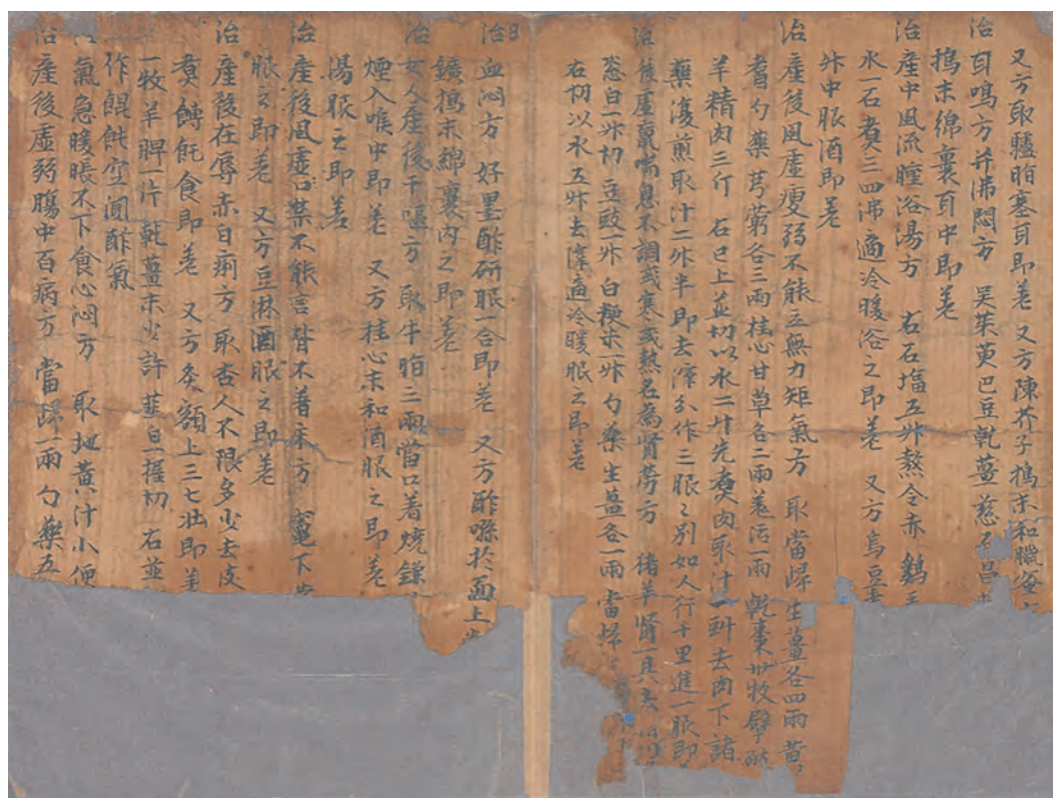 又方取驢脂塞耳即差又方陳芥子搗末和
治耳鳴方并沸悶方吳茱萸巴豆乾薑
搗末綿裹耳中即差
治產中風流瘇浴湯方右石塩五升熬令赤
水一石煮三四沸適冷暖浴之即差又方烏豆
升中服酒即差
治產後風虛瘦弱不能立無力矩氣方取當歸生薑各四兩黃
耆勺藥芎藭各三兩桂心甘草各二兩羌活一兩乾棗卅牧擘
羊精肉三斤右已上並切以水二斗先煑肉取汁一斗去肉下諸
藥復煎取汁二升半即去滓分作三服々別如人行十里進一服即
治後虛羸喘息不調或寒或熱名為腎勞方猪羊腎一具去
葱白一升切豆豉一升白粳米一升勺藥生薑各一兩當歸
右切以水五升去滓適冷暖服之即差
治血悶方好墨酢研服一合即差又方酢噀於面上
鑛搗末綿裹內之即差
治女人產後干嘔方取牛脂三兩當口着燒
煙入喉中即差又方桂心末和酒服之即差
湯服之即差
治產後風虛口噤不能言皆不著床方竈下
服之即差又方豆淋酒服之即差
治產後在辱赤白痢方取杏人不限多少去皮
煑餺飥食即差又方灸額上三七壯即差
一牧羊脾一片乾薑末少許薤白一握切右並
作餛飩空酒酢氣
氣急暖脹不下食心悶方取地黃汁小便
治產後虛弱腸中百病方當歸一兩勺藥五